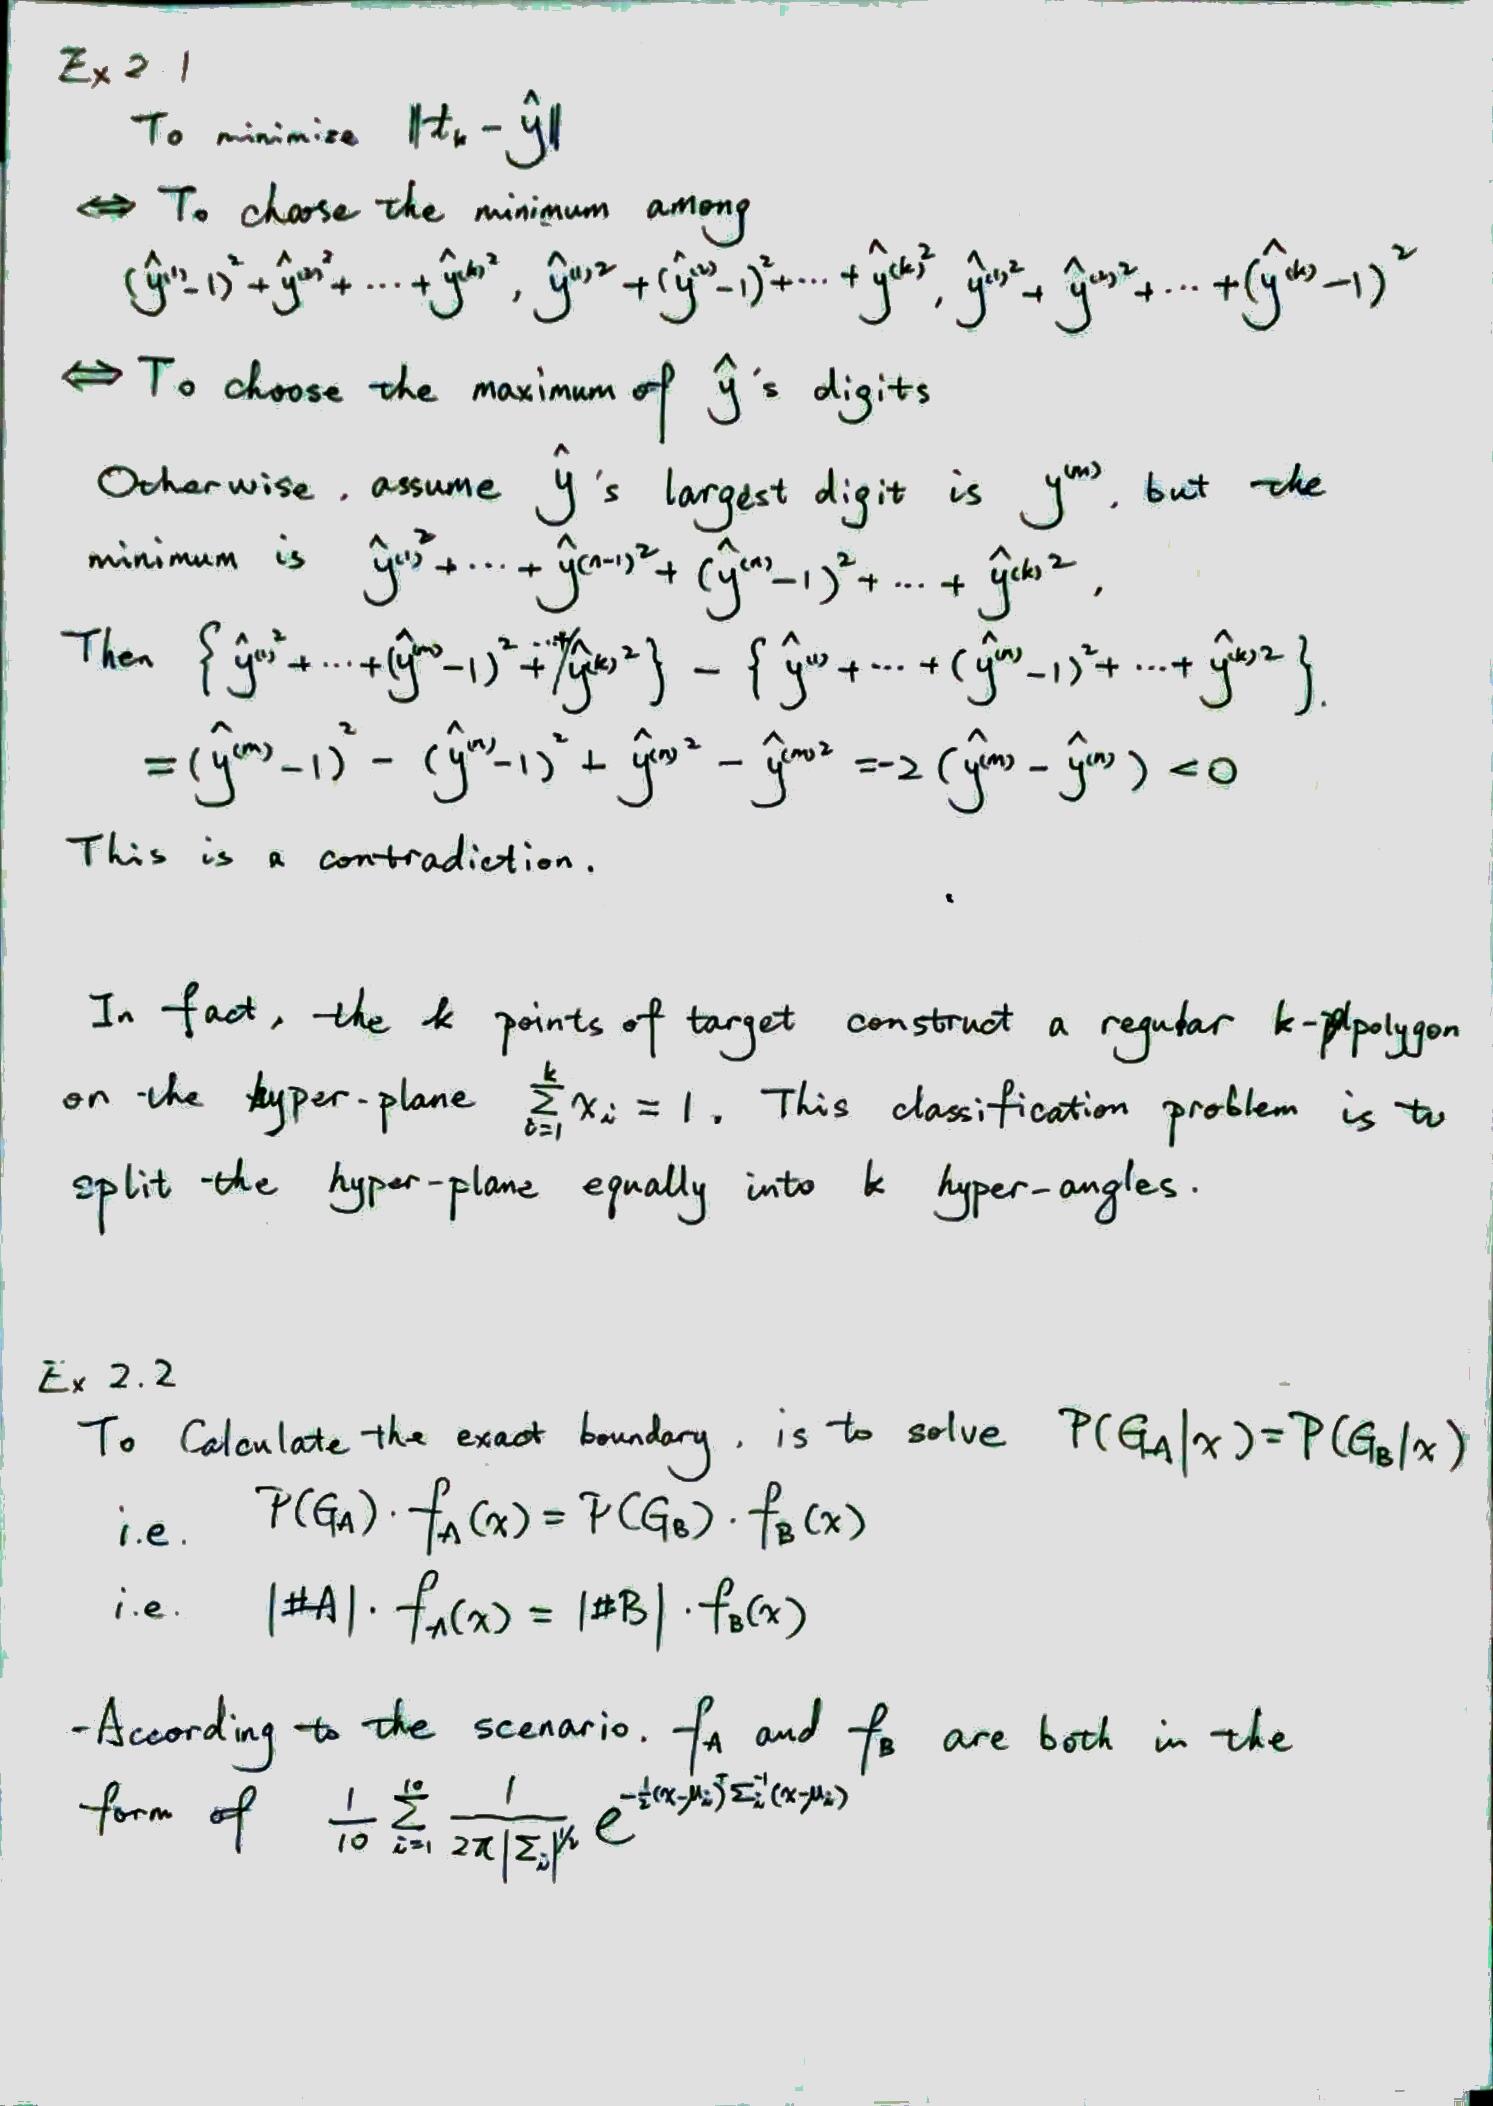 Ex 2.1
To minimize ‖t_k - ŷ‖
⇔ To choose the minimum among
(ŷ^(1)-1)^2 + ŷ^(2)^2 + ... + ŷ^(k)^2, ŷ^(1)^2 + (ŷ^(2)-1)^2 + ... + ŷ^(k)^2, ŷ^(1)^2 + ŷ^(2)^2 + ... + (ŷ^(k)-1)^2
⇔ To choose the maximum of ŷ's digits
Otherwise, assume ŷ's largest digit is y^(m), but the
minimum is ŷ^(1)^2 + ... + ŷ^(n-1)^2 + (ŷ^(n)-1)^2 + ... + ŷ^(k)^2,
Then {ŷ^(1)^2 + ... + (ŷ^(m)-1)^2 + ... + ŷ^(k)^2} - {ŷ^(1) + ... + (ŷ^(n)-1)^2 + ... + ŷ^(k)^2}.
= (ŷ^(m)-1)^2 - (ŷ^(n)-1)^2 + ŷ^(n)^2 - ŷ^(m)^2 = -2(ŷ^(m) - ŷ^(n)) < 0
This is a contradiction.
In fact, the k points of target construct a regular k-polygon
on the hyper-plane Σ_{i=1}^{k} x_i = 1. This classification problem is to
split the hyper-plane equally into k hyper-angles.
Ex 2.2
To Calculate the exact boundary, is to solve P(G_A|x) = P(G_B|x)
i.e. P(G_A)·f_A(x) = P(G_B)·f_B(x)
i.e. |#A|·f_A(x) = |#B|·f_B(x)
-According to the scenario. f_A and f_B are both in the
form of 1/10 Σ_{i=1}^{10} 1/(2π|Σ_i|^{1/2}) e^{-1/2(x-μ_i)^T Σ_i^{-1}(x-μ_i)}